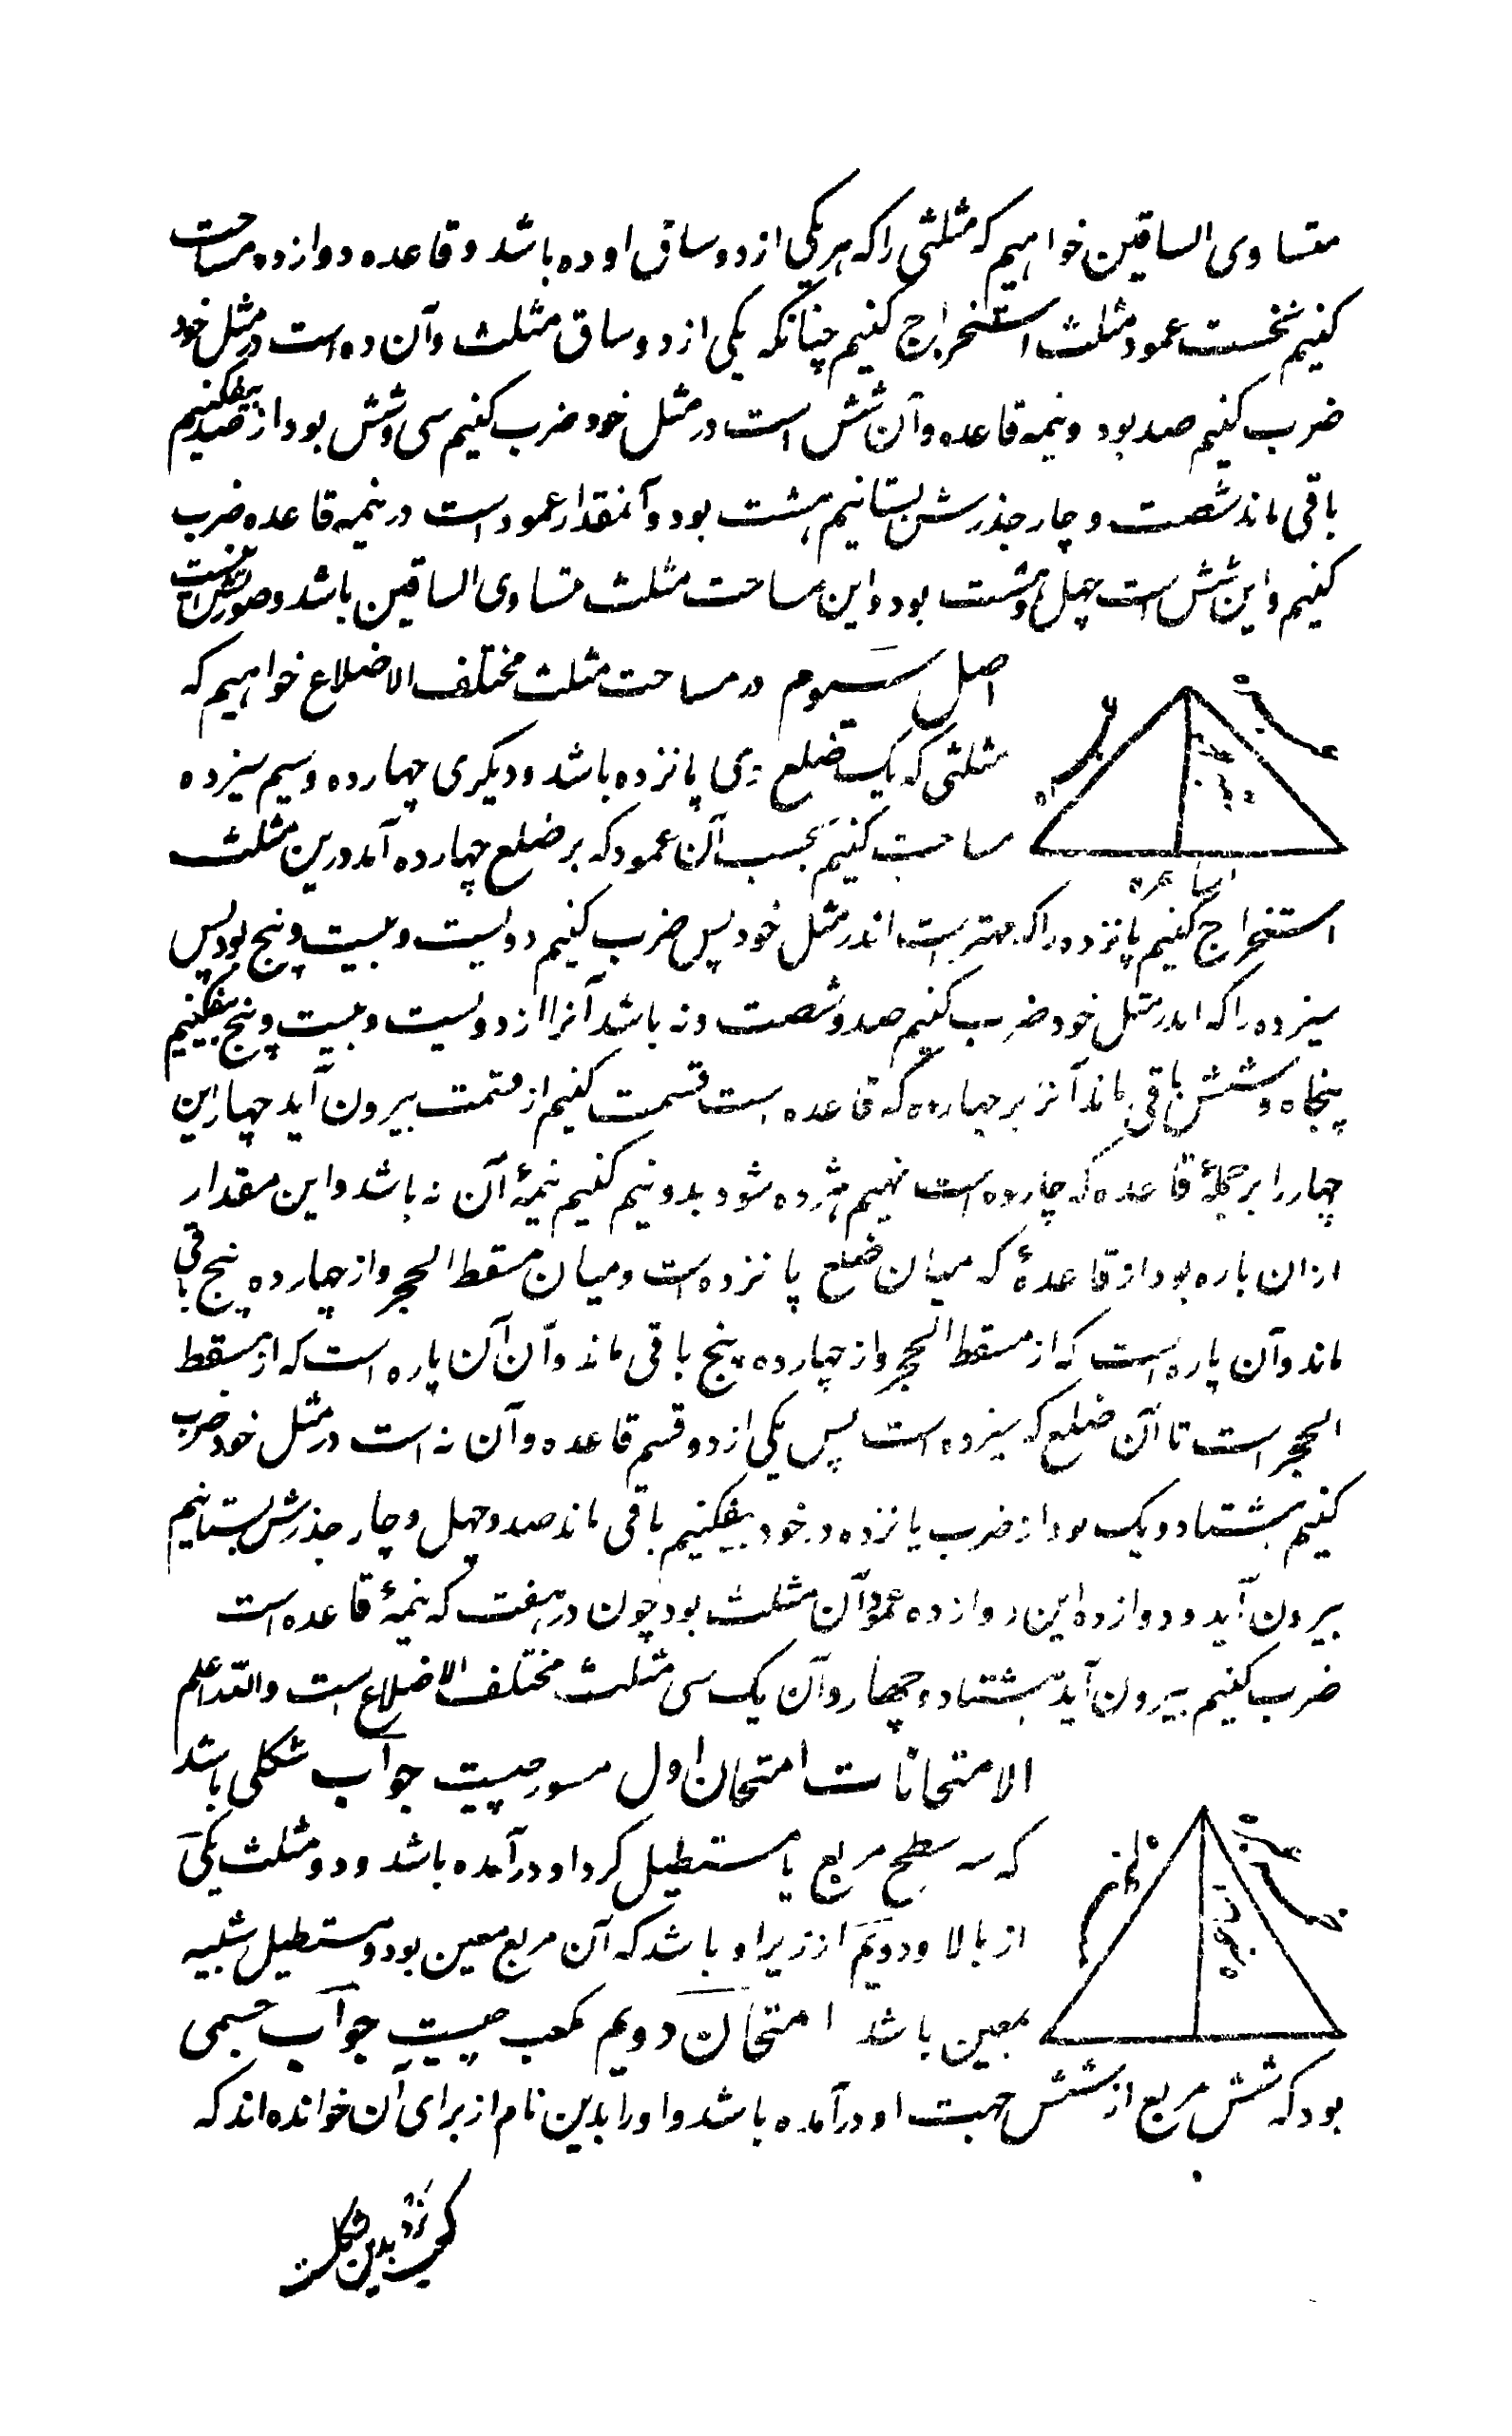 متساوی الساقین خواهیم که مثلثی را که هر یکی از دو ساق او ده باشد و قاعده دوازده مساحت
کنیم نخست عمود مثلث استخراج کنیم چنانکه یکی از دو ساق مثلث و آن ده است در مثل خود
ضرب کنیم صد بود و نیمه قاعده و آن شش است در مثل خود ضرب کنیم سی و شش بود از صد بیفکنیم
باقی ماند شصت و چار جذرش بستانیم هشت بود و آنمقدار عمود است در نیمه قاعده ضرب
کنیم و این شش است چهل و هشت بود و این مساحت مثلث متساوی الساقین باشد و صورتش اینست
اصل سیوم در مساحت مثلث مختلف الاضلاع خواهیم که
مثلثی که یک ضلع وی پانزده باشد و دیگری چهارده و سیم سیزده
مساحت کنیم بحسب آن عمود که بر ضلع چهارده آمد درین مثلث
استخراج کنیم پانزده را که مهترست اندر مثل خود پس ضرب کنیم دولیست و بیست و پنج بود پس
سیزده را که اندر مثل خود ضرب کنیم صد و شصت و نه باشد آنرا از دولیست و بیست و پنج بیفکنیم
پنجاه و شش باقی ماند آنرا بر چهارده که قاعده است قسمت کنیم از قسمت بیرون آید چهار این
چهار را بر جملهٔ قاعده که چارده است نهیم هژده شود بدو نیم کنیم نیمهٔ آن نه باشد و این مقدار
ازان پاره بود از قاعدهٔ که میان ضلع پانزده است و میان مسقط الحجر و از چهارده پنج باقی
ماند و آن پاره است که از مسقط الحجر و از چهارده پنج باقی ماند و آن آن پاره است که از مسقط
الحجر است تا آن ضلع که سیزده است پس یکی از دو قسم قاعده و آن نه است در مثل خود ضرب
کنیم هشتاد و یک بود از ضرب پانزده در خود بیفکنیم باقی ماند صد و چهل و چار جذرش بستانیم
بیرون آید و دوازده این دوازده عمود آن مثلث بود چون در هفت که نیمهٔ قاعده است
ضرب کنیم بیرون آید هشتاد و چهار و آن یک سی مثلث مختلف الاضلاع است والله اعلم
الامتحانات امتحان اول چیست جواب شکلی باشد
که سه سطح مربع یا مستطیل کرد او درآمده باشد و دو مثلث یکی
از بالا و دویم از زیر او باشد که آن مربع معین بود و مستطیل شبیه
بمعین باشد امتحان دویم مکعب چیست جواب جسمی
بود که شش مربع از شش جهت او درآمده باشد و او را بدین نام از برای آن خوانده اند که